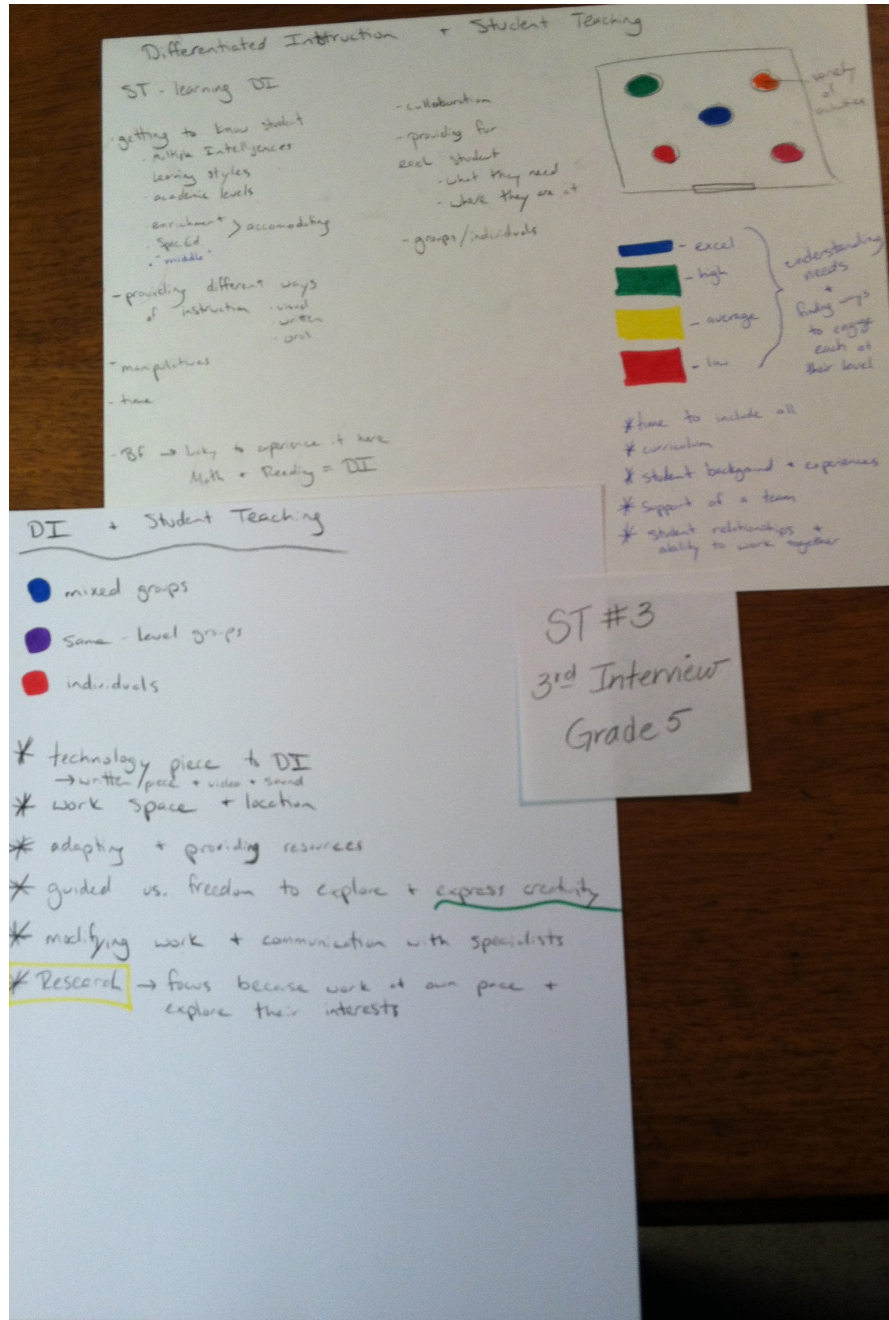 Differentiated Instruction + Student Teaching
ST - learning DI
- getting to know student
- Multiple Intelligences
learning styles
- academic levels
- enrichment > accomodating
- Spec. Ed
- "middle"
- providing different ways
of instruction - visual
- written
- oral
- manipulatives
- time
- BF → Lucky to experience it here
Math + Reading = DI
- collaboration
- providing for
each student
- what they need
- where they are at
- groups/individuals
variety
of
activities
- excel
- high
- average
- low
understanding
needs
+
finding ways
to engage
each at
their level
* time to include all
* curriculum
* student background + experiences
* support of a team
* student relationships +
ability to work together
DI + Student Teaching
mixed groups
same-level groups
individuals
* technology piece to DI
→ written/piece + video + sound
* work space + location
* adapting + providing resources
* guided vs. freedom to explore + express creativity
* modifying work + communication with specialists
* Research → focus because work at own pace +
explore their interests
ST #3
3rd Interview
Grade 5